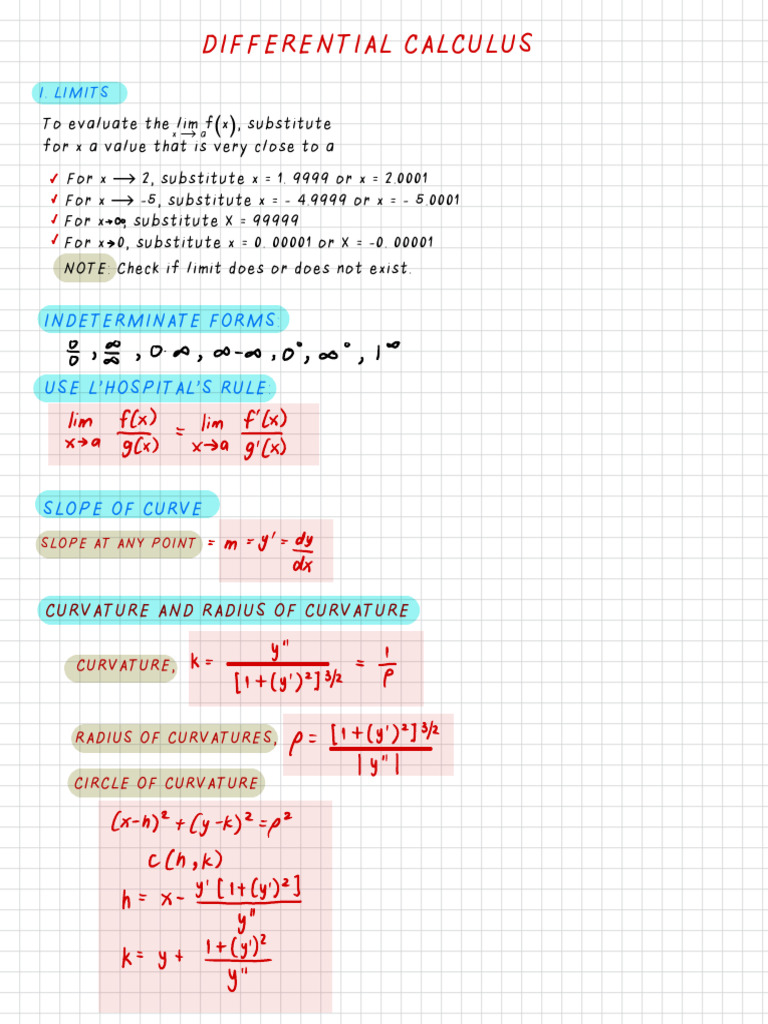 DIFFERENTIAL CALCULUS
1. LIMITS
To evaluate the lim x→a f(x), substitute
for x a value that is very close to a
✓ For x → 2, substitute x = 1.9999 or x = 2.0001
✓ For x → -5, substitute x = -4.9999 or x = -5.0001
✓ For x→∞, substitute X = 99999
✓ For x→0, substitute x = 0.00001 or X = -0.00001
NOTE: Check if limit does or does not exist.
INDETERMINATE FORMS:
0/0, ∞/∞, 0·∞, ∞-∞, 0°, ∞°, 1^∞
USE L'HOSPITAL'S RULE:
lim x→a f(x)/g(x) = lim x→a f'(x)/g'(x)
SLOPE OF CURVE
SLOPE AT ANY POINT = m = y' = dy/dx
CURVATURE AND RADIUS OF CURVATURE
CURVATURE, k = y''/[1+(y')²]^3/2 = 1/ρ
RADIUS OF CURVATURES, ρ = [1+(y')²]^3/2/|y''|
CIRCLE OF CURVATURE
(x-h)²+(y-k)²=ρ²
C(h,k)
h = x- y'[1+(y')²]/y''
k= y+ 1+(y')²/y''